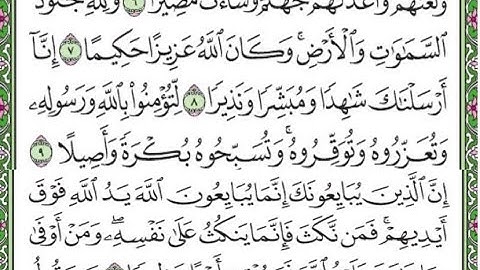 وَلَعَنَهُمْ وَأَعَدَّ لَهُمْ جَهَنَّمَ وَسَآءَتْ مَصِيرًا ٦ وَلِلَّهِ جُنُودُ
ٱلسَّمَٰوَٰتِ وَٱلْأَرْضِ ۚ وَكَانَ ٱللَّهُ عَزِيزًا حَكِيمًا ٧ إِنَّآ
أَرْسَلْنَٰكَ شَٰهِدًا وَمُبَشِّرًا وَنَذِيرًا ٨ لِّتُؤْمِنُوا۟ بِٱللَّهِ وَرَسُولِهِۦ
وَتُعَزِّرُوهُ وَتُوَقِّرُوهُ ۚ وَتُسَبِّحُوهُ بُكْرَةً وَأَصِيلًا ٩
إِنَّ ٱلَّذِينَ يُبَايِعُونَكَ إِنَّمَا يُبَايِعُونَ ٱللَّهَ يَدُ ٱللَّهِ فَوْقَ
أَيْدِيهِمْ ۚ فَمَن نَّكَثَ فَإِنَّمَا يَنكُثُ عَلَىٰ نَفْسِهِۦ ۖ وَمَنْ أَوْفَىٰ